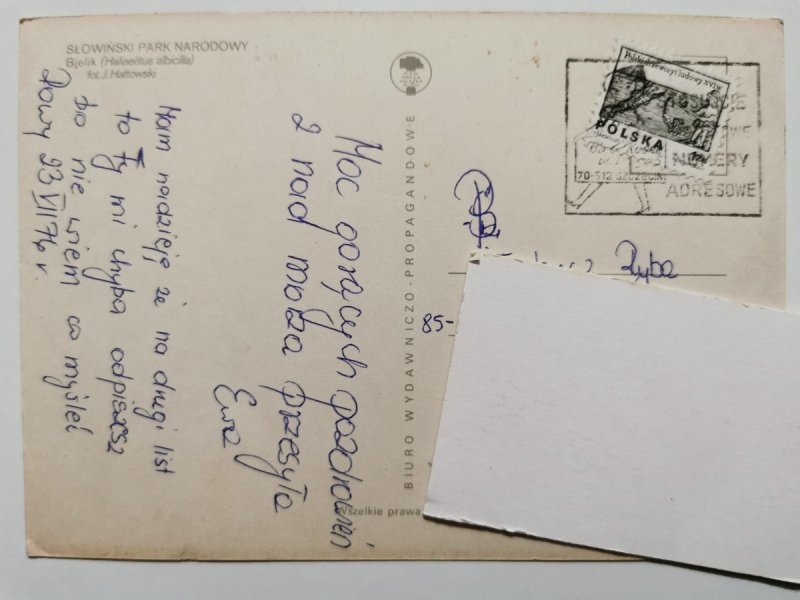 SŁOWIŃSKI PARK NARODOWY
Bielik (Haliaeëtus albicilla)
fot. J. Hattowski
Moc gorących pozdrowień
z nad morza przesyła
Ewa
Mam nadzieję że na drugi list
to Ty mi chyba odpiszesz
bo nie wiem co myśleć
23 VII 76 r.
BIURO WYDAWNICZO-PROPAGANDOWE
Wszelkie prawa
Polski drzeworyt ludowy XVI w.
POLSKA
70-512 SZCZECIN
NUMERY
ADRESOWE
Ryba
85-